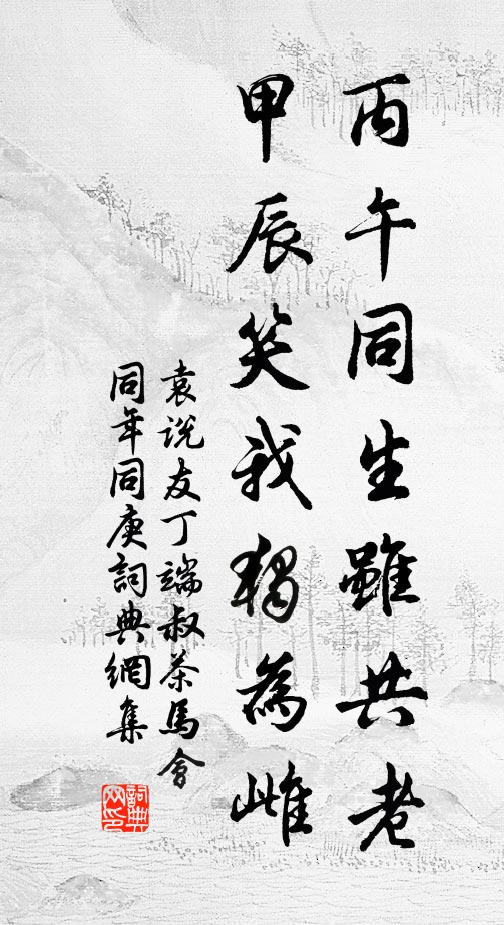 丙午同生雖共老
甲辰笑我獨為雌
袁說友丁端叔茶馬會
同年同庚詞典網集